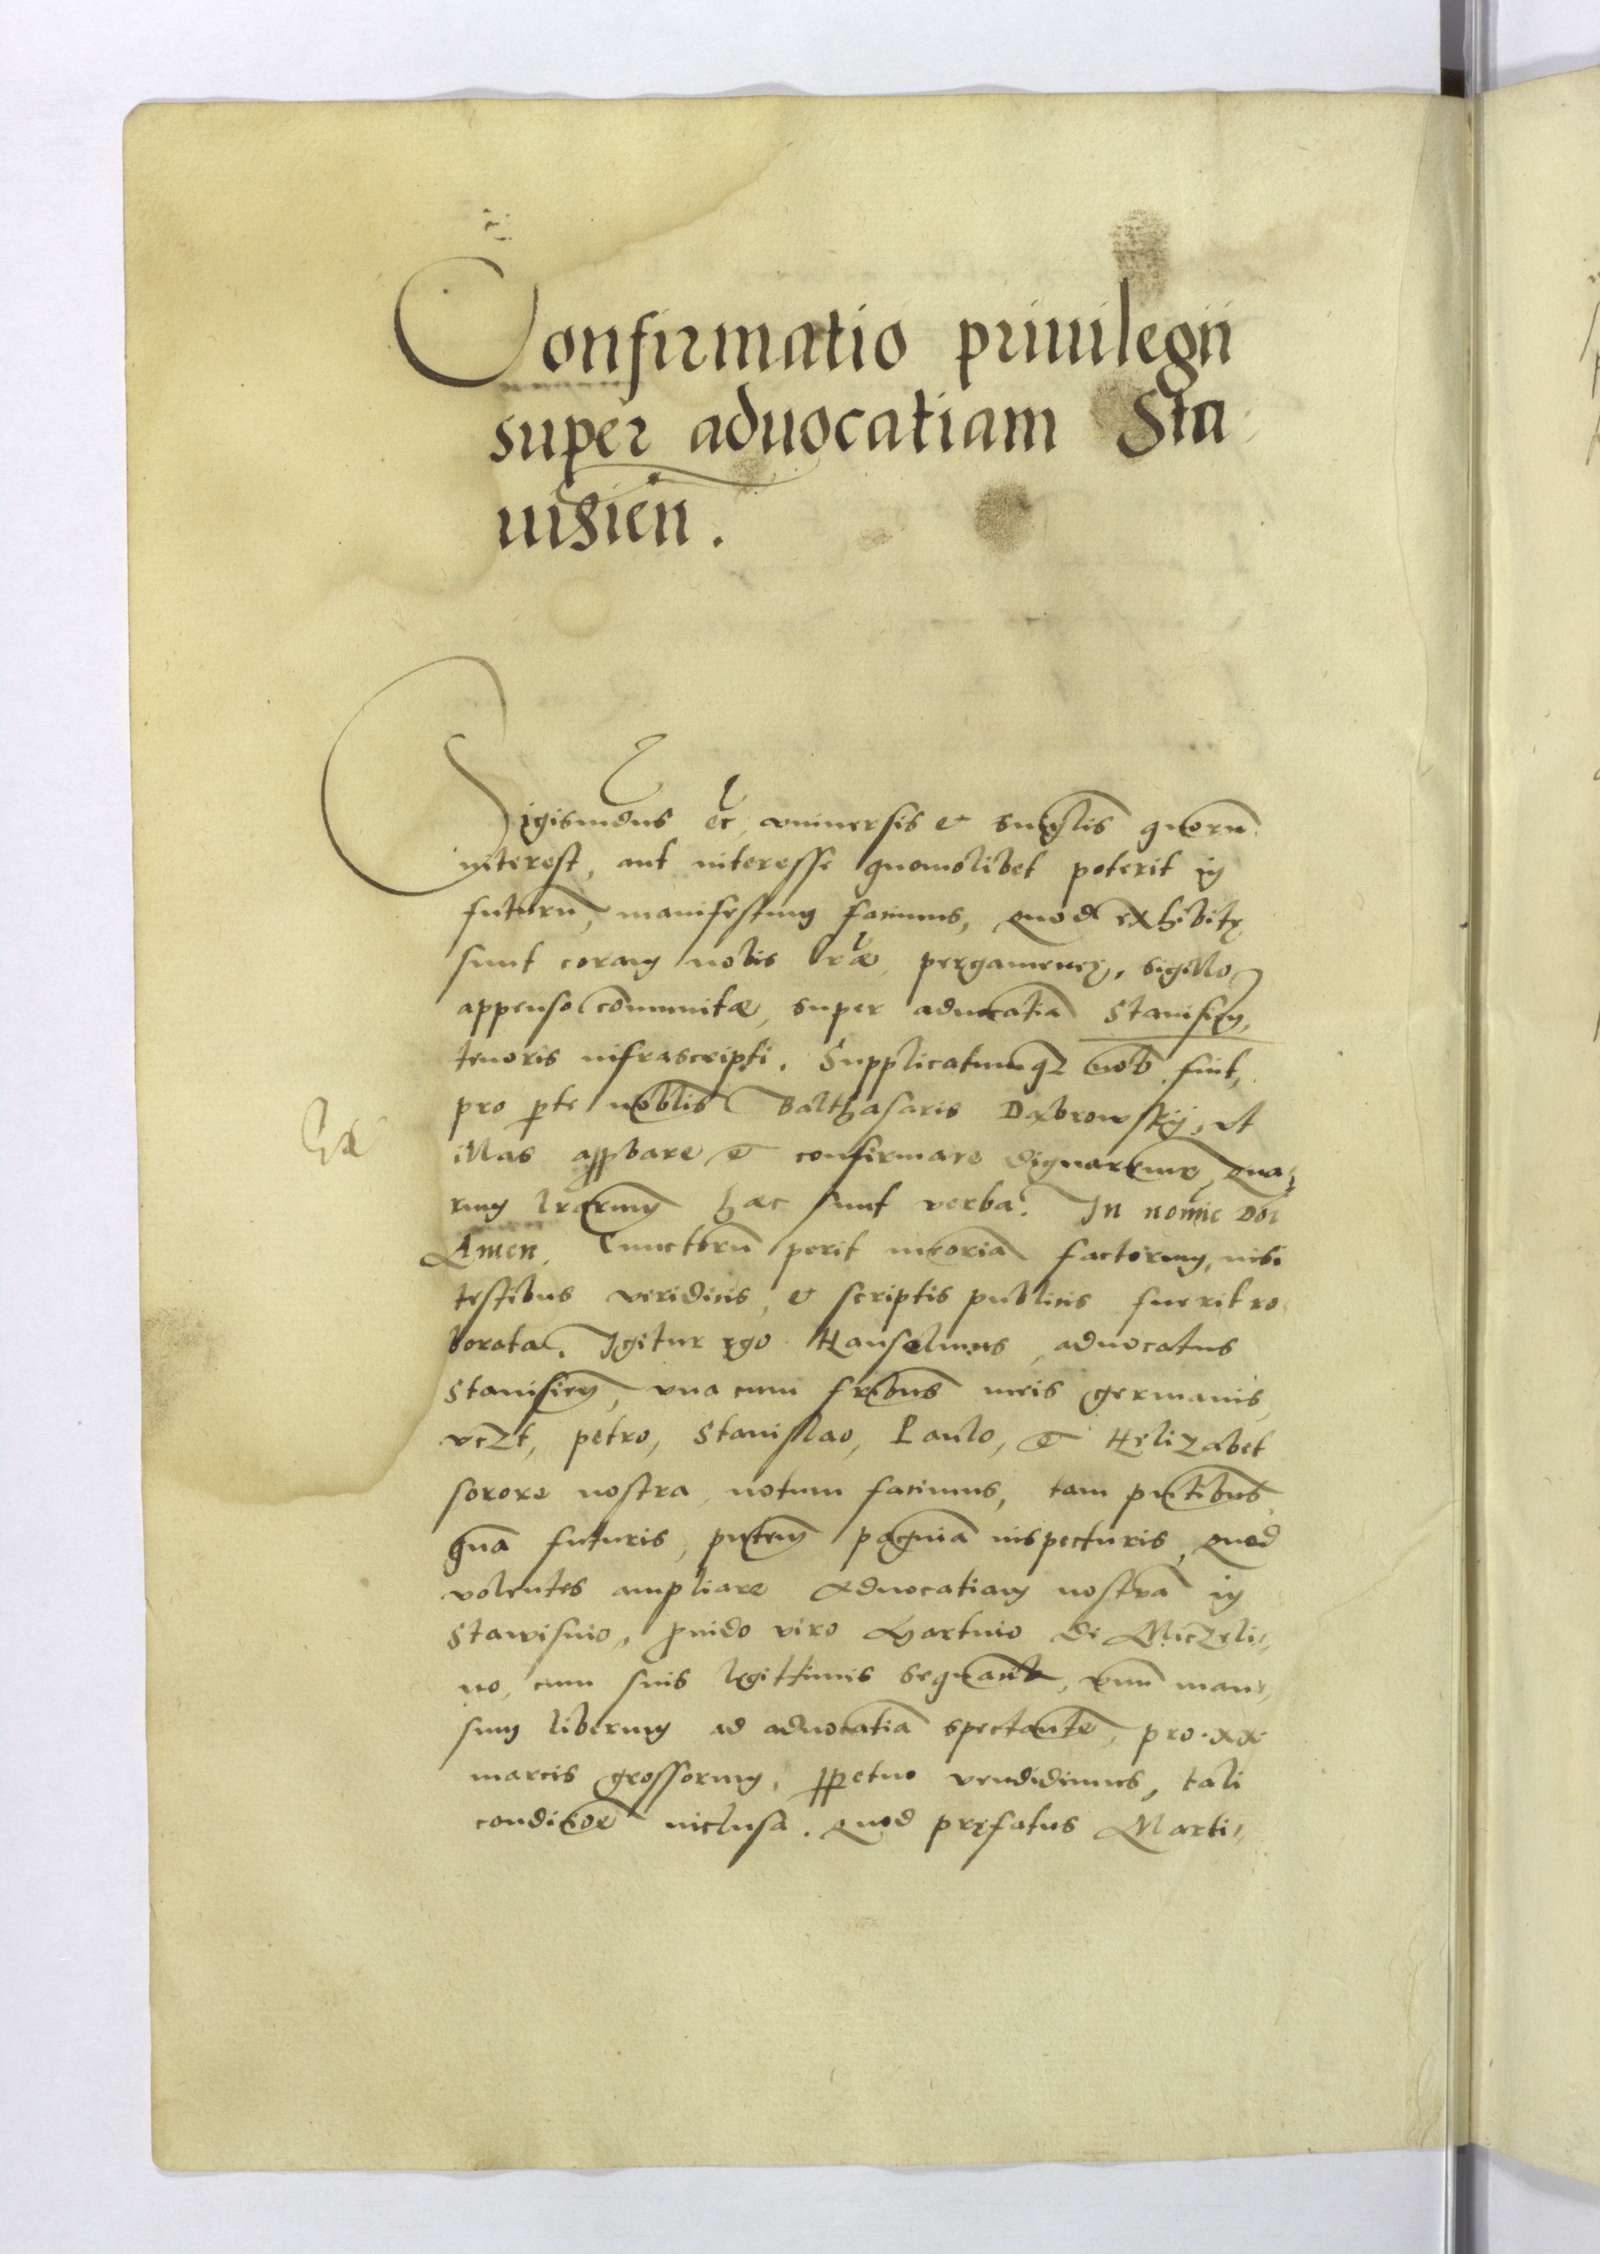 Confirmatio priuilegii
super aduocatiam Sta
uisien.
Sigismũdus etc vniuersis et singlis̃ quorũ
interest, aut interesse quomolibet poterit in
futurũ, manifestum facimus, Quod exhibitę
sunt coram nobis lr̃æ pergameneę, sigillo
appenso cõmunitæ, super aduocatiã Stanisien,
tenoris infrascripti. Supplicatumqꝫ nob̃ fuit,
pro ꝑte noblis̃ Balthasaris Dąbrowskÿ, vt
illas apꝓbare et confirmare dignaremur, Qua
rum lr̃arum hæc sunt verba. In nomīe Doī
Amen. Cunctorũ perit meoriã factorum, nisi
testibus veridicis, et scriptis publicis fuerit ro
borata. Igitur ego Hanselmus, aduocatus
Stanisien, vna cum fribus̃ meis germanis,
vcꝫt, petro, Stanislao, Paulo, et Helizabet
sorore nostra, notum facimus, tam pñtibus,
quã futuris, pñtem paginã inspecturis, Quod
volentes ampliare Aduocatiam nostrã in
Stawisino, ꝓuido viro Martino de Miczeli
no, cum suis legittimis sequacib, vnũ man
sum liberum ad aduocatiã spectantẽ, pro xx
marcis grossorum, ꝑpetuo vendidimus, tali
condicoẽ inclusa. Quod pręfatus Marti